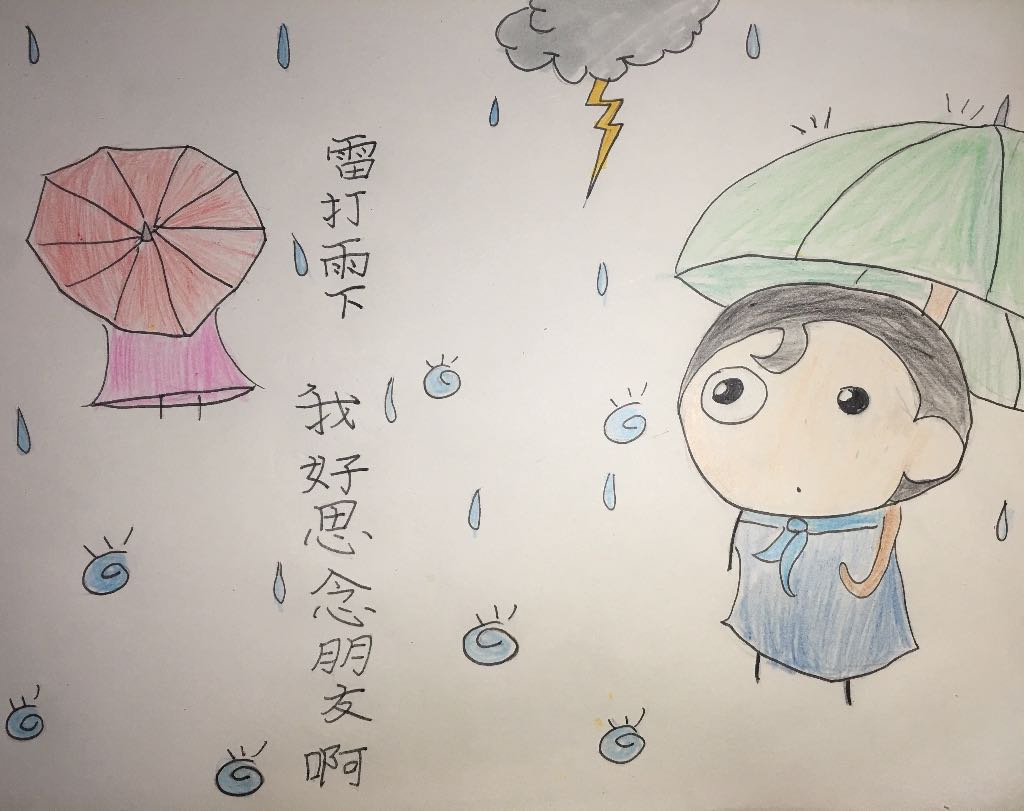 雷打雨下
我好思念朋友啊